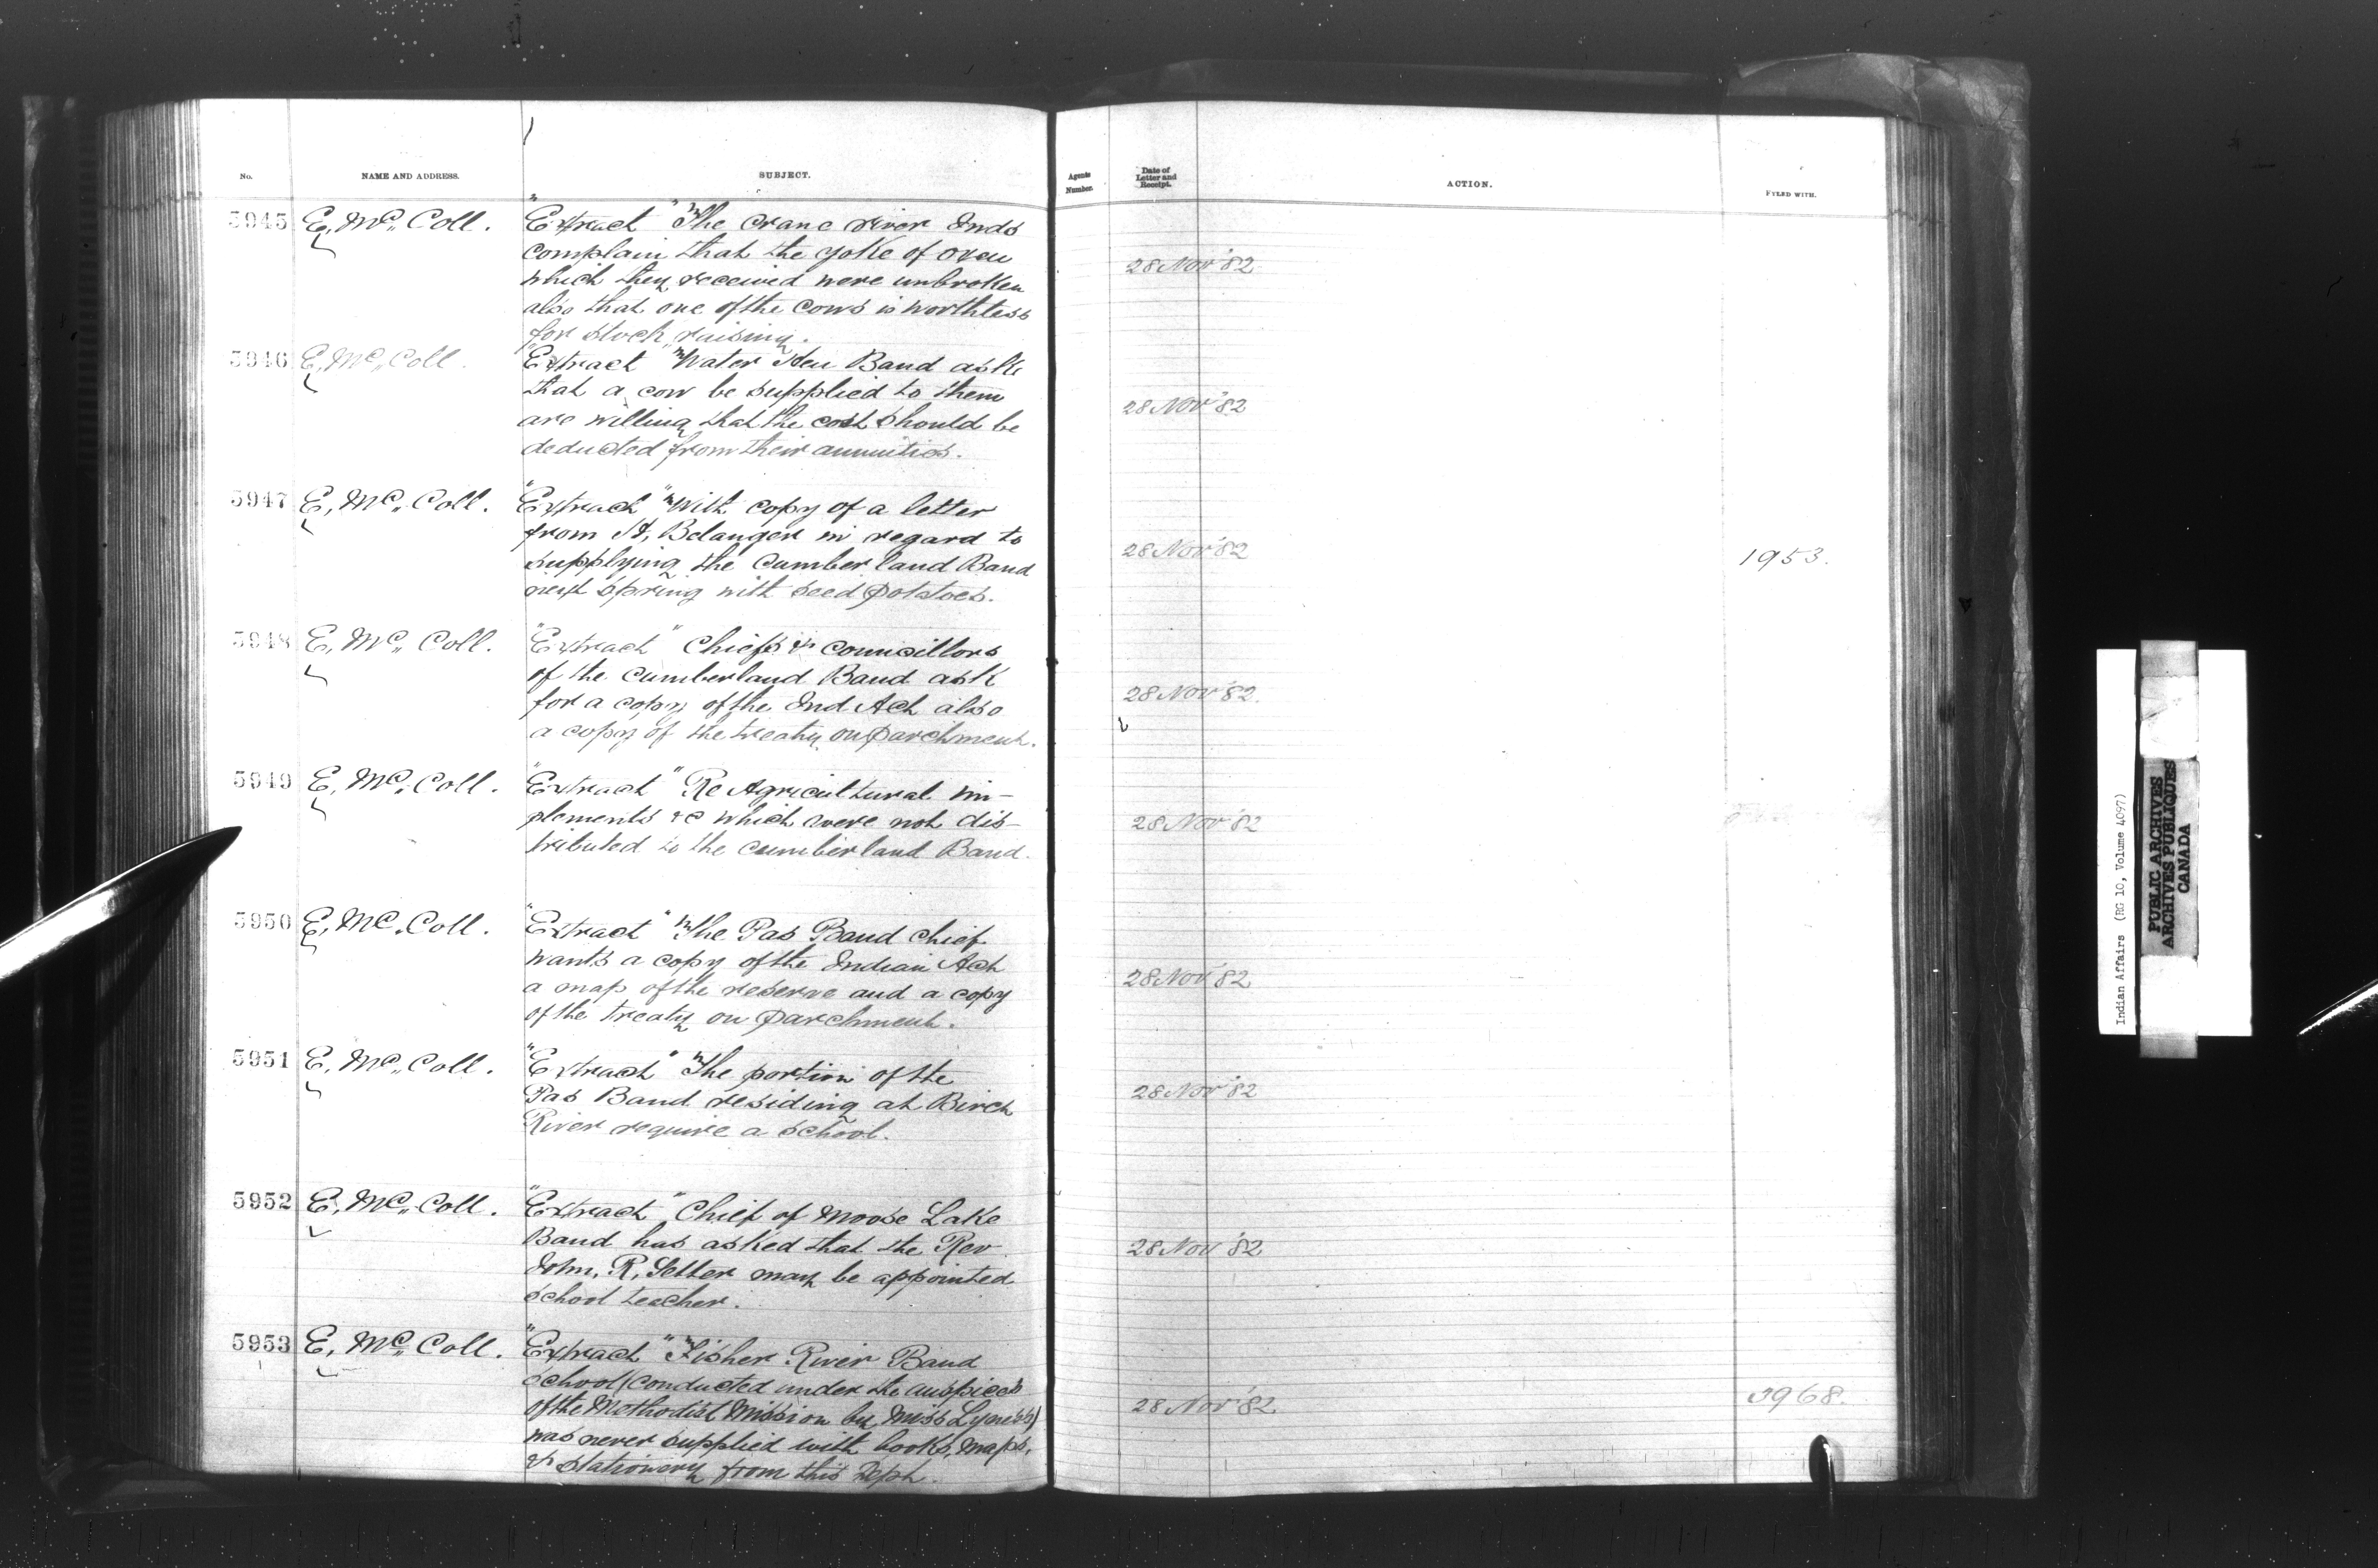 No.
NAME AND ADDRESS.
SUBJECT.
Agents Number.
Date of Letter and Receipt.
ACTION.
FYLED WITH.
5945 E. Mc. Coll. "Extract" "The Crane River Inds
complain that the yoke of oxen
28 Nov '82
which they received were unbroken
also that one of the cows is worthless
for stock raising.
5946 E. Mc. Coll. "Extract "Water Hen Band ask
that a cow be supplied to them
28 Nov '82
are willing that the cost should be
deducted from their annuities.
5947 E. Mc. Coll. "Extract" "With copy of a letter
from A. Belanger in regard to
28 Nov '82
1953.
supplying the Cumberland Band
next spring with seed potatoes.
5948 E. Mc. Coll. "Extract" Chiefs & Councillors
of the Cumberland Band ask
28 Nov '82.
for a copy of the Ind Act also
a copy of the treaty on parchment.
5949 E. Mc. Coll. "Extract" Re Agricultural im-
plements &c which were not dis-
28 Nov '82
tributed to the Cumberland Band.
5950 E. Mc. Coll. "Extract" "The Pas Band Chief
wants a copy of the Indian Act
28 Nov '82
a map of the reserve and a copy
of the treaty on parchment.
5951 E. Mc. Coll. "Extract" "The portion of the
Pas Band residing at Birch
28 Nov '82
River require a school.
5952 E. Mc. Coll. "Extract" Chief of Moose Lake
Band has asked that the Rev
28 Nov '82
John. R. Setter may be appointed
school teacher.
5953 E. Mc. Coll. "Extract" "Fisher River Band
School (conducted under the auspices
28 Nov '82
3968.
of the Methodist Mission by Miss
was never supplied with books, maps,
& stationery from this Dept.
Indian Affairs (RG 10, Volume 4097)
PUBLIC ARCHIVES
ARCHIVES PUBLIQUES
CANADA